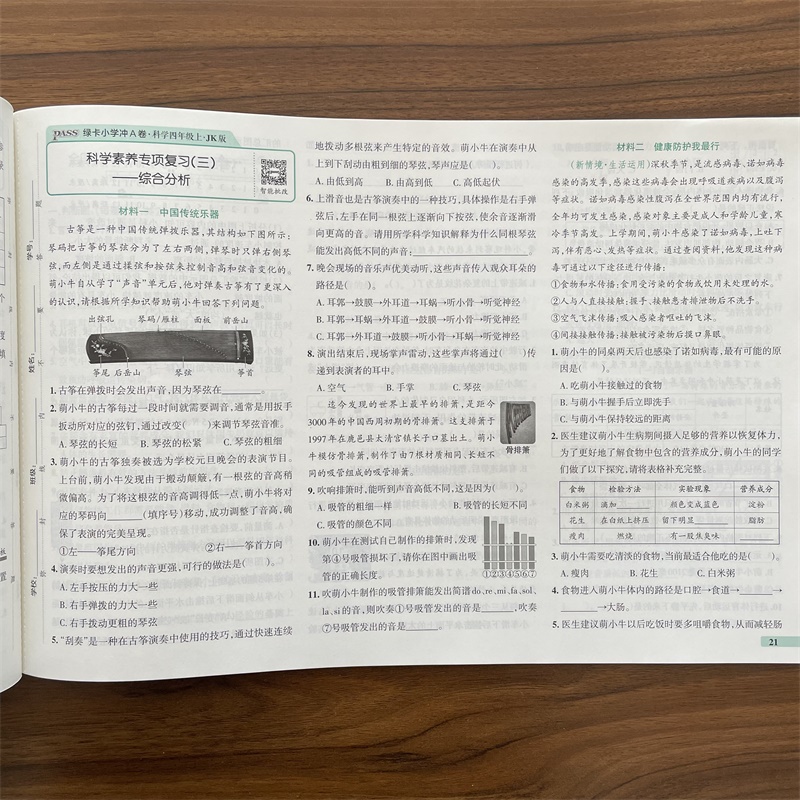 PASS 绿卡小学冲A卷·科学四年级上·JK版
科学素养专项复习(三)
——综合分析
智能批改
材料一 中国传统乐器
古筝是一种中国传统弹拨乐器,其结构如下图所示:
琴码把古筝的琴弦分为了左右两侧,弹琴时只弹右侧琴
弦,而左侧是通过揉弦和按弦来控制音高和弦音变化的。
萌小牛自从学了“声音”单元后,他对弹奏古筝有了更深入
的认识,请根据所学知识帮助萌小牛回答下列问题。
出弦孔 琴码/雁柱 面板 前岳山
筝尾 后岳山 琴弦 筝首
1. 古筝在弹拨时会发出声音,因为琴弦在________。
2. 萌小牛的古筝每过一段时间就需要调音,通常是用扳手
扳动所对应的弦钉,通过改变( )来调节琴弦音准。
A. 琴弦的长短 B. 琴弦的松紧 C. 琴弦的粗细
3. 萌小牛的古筝独奏被选为学校元旦晚会的表演节目。
上台前,萌小牛发现由于搬动颠簸,有一根弦的音高稍
微偏高。为了将这根弦的音高调得低一点,萌小牛将对
应的琴码向________(填序号)移动,成功调整了音高,确
保了表演的完美呈现。
①左——筝尾方向 ②右——筝首方向
4. 演奏时要想发出的声音更强,可行的做法是( )。
A. 左手按压的力大一些
B. 右手弹拨的力大一些
C. 右手拨动更粗的琴弦
5. “刮奏”是一种在古筝演奏中使用的技巧,通过快速连续
地拨动多根弦来产生特定的音效。萌小牛在演奏中从
上到下刮动由粗到细的琴弦,琴声应是( )。
A. 由低到高 B. 由高到低 C. 高低起伏
6. 上滑音也是古筝演奏中的一种技巧,具体操作是右手弹
弦后,左手在同一根弦上逐渐向下按弦,使余音逐渐滑
向更高的音。请用所学科学知识解释为什么同根琴弦
能发出高低不同的声音:________
7. 晚会现场的音乐声优美动听,这些声音传入观众耳朵的
路径是( )。
A. 耳郭→鼓膜→外耳道→耳蜗→听小骨→听觉神经
B. 耳郭→耳蜗→外耳道→鼓膜→听小骨→听觉神经
C. 耳郭→外耳道→鼓膜→听小骨→耳蜗→听觉神经
8. 演出结束后,现场掌声雷动,这些掌声将通过( )传
递到表演者的耳中。
A. 空气 B. 手掌 C. 琴弦
迄今发现的世界上最早的排箫,是距今
3000年的中国西周初期的骨排箫。这支排箫于
1997年在鹿邑县太清宫镇长子口墓出土。萌小
牛模仿骨排箫,制作了由7根材质相同、长短不
同的吸管组成的吸管排箫。
骨排箫
9. 吹响排箫时,能听到声音高低不同,这是因为( )。
A. 吸管的粗细一样 B. 吸管的长短不同
C. 吸管的颜色不同
10. 萌小牛在测试自己制作的排箫时,发现
第④号吸管损坏了,请你在图中画出吸
管的正确长度。
①②③④⑤⑥⑦
11. 吹萌小牛制作的吸管排箫能发出简谱do、re、mi、fa、sol、
la、si的音,则吹奏①号吸管发出的音是________,吹奏
⑦号吸管发出的音是________。
材料二 健康防护我最行
(新情境·生活运用)深秋季节,是流感病毒、诺如病毒
感染的高发季,感染这些病毒会出现呼吸道疾病以及腹泻
等症状。诺如病毒感染性腹泻在全世界范围内均有流行,
全年均可发生感染,感染对象主要是成人和学龄儿童,寒
冷季节高发。上学期间,萌小牛感染了诺如病毒,上吐下
泻,伴有恶心、发热等症状。通过查阅资料,他发现这种病
毒可通过以下途径进行传播:
①食物和水传播:食用受污染的食物或饮用未处理的水。
②人与人直接接触:握手、接触患者排泄物后不洗手。
③空气飞沫传播:吸入感染者呕吐的飞沫。
④间接接触传播:接触被污染物后摸口鼻眼。
1. 萌小牛的同桌两天后也感染了诺如病毒,最有可能的原
因是( )。
A. 吃萌小牛接触过的食物
B. 与萌小牛握手后立即洗手
C. 与萌小牛保持较远的距离
2. 医生建议萌小牛生病期间摄入足够的营养以恢复体力,
为了更好地了解食物中包含的营养成分,萌小牛的同学
们做了以下探究,请将表格补充完整。
食物 检验方法 实验现象 营养成分
白米粥 滴加________ 颜色变成蓝色 淀粉
花生 在白纸上挤压 留下明显________ 脂肪
瘦肉 燃烧 有一股焦臭味 ________
3. 萌小牛需要吃清淡的食物,当前最适合他吃的是( )。
A. 瘦肉 B. 花生 C. 白米粥
4. 食物进入萌小牛体内的路径是口腔→食道→________→
________→大肠。
5. 医生建议萌小牛以后吃饭时要多咀嚼食物,从而减轻肠
21
学号:
姓名:
班级:
学校: